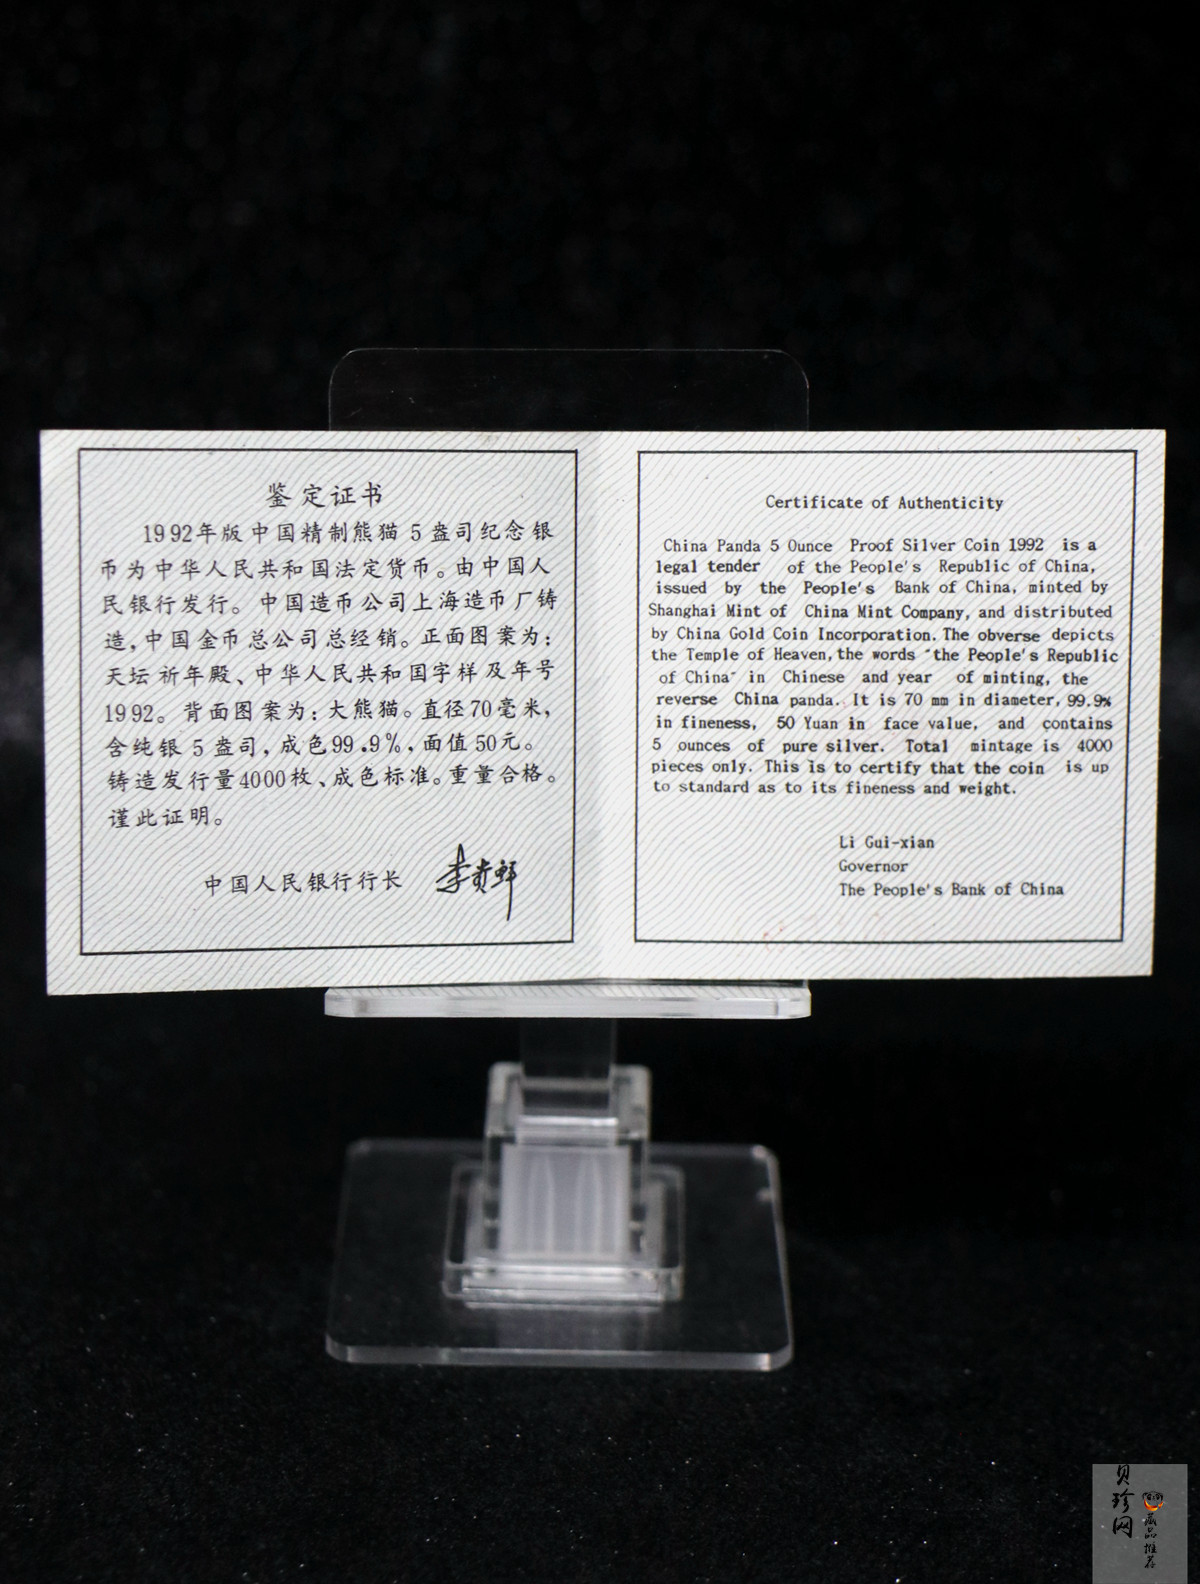 鉴定证书
1992年版中国精制熊猫5盎司纪念银
币为中华人民共和国法定货币。由中国人
民银行发行。中国造币公司上海造币厂铸
造,中国金币总公司总经销。正面图案为:
天坛祈年殿、中华人民共和国字样及年号
1992。背面图案为:大熊猫。直径70毫米,
含纯银5盎司,成色99.9%,面值50元。
铸造发行量4000枚、成色标准。重量合格。
谨此证明。
中国人民银行行长 李贵鲜
Certificate of Authenticity
China Panda 5 Ounce Proof Silver Coin 1992 is a
legal tender of the People's Republic of China,
issued by the People's Bank of China, minted by
Shanghai Mint of China Mint Company, and distributed
by China Gold Coin Incorporation. The obverse depicts
the Temple of Heaven, the words "the People's Republic
of China" in Chinese and year of minting, the
reverse China panda. It is 70 mm in diameter, 99.9%
in fineness, 50 Yuan in face value, and contains
5 ounces of pure silver. Total mintage is 4000
pieces only. This is to certify that the coin is up
to standard as to its fineness and weight.
Li Gui-xian
Governor
The People's Bank of China
贝珍网
藏品推荐